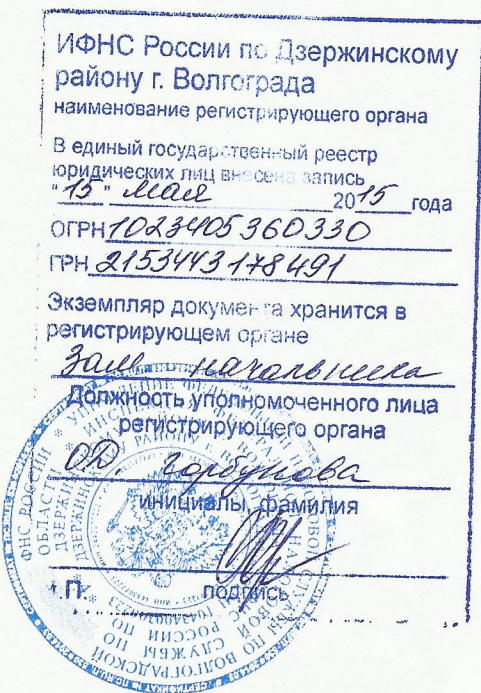 ИФНС России по Дзержинскому
району г. Волгограда
наименование регистрирующего органа
В единый государственный реестр
юридических лиц внесена запись
"15" мая 2015 года
ОГРН 1023405360330
ГРН 2153443178491
Экземпляр документа хранится в
регистрирующем органе
Зам. начальника
Должность уполномоченного лица
регистрирующего органа
О.Д. Горбунова
инициалы, фамилия
подпись
.П.